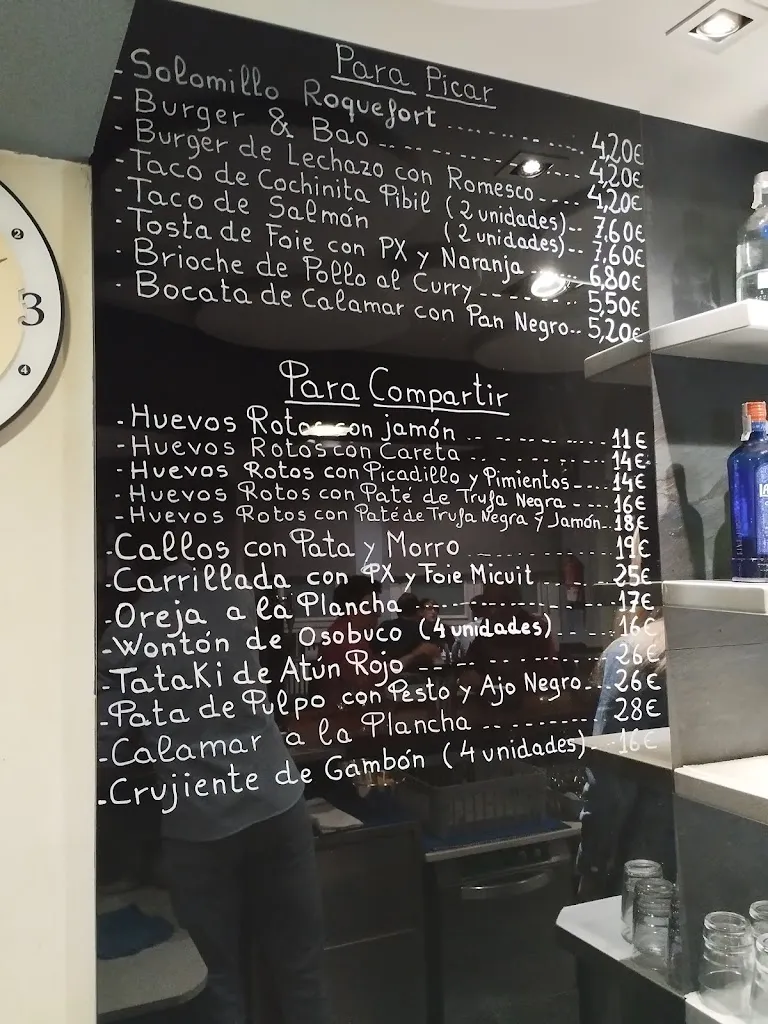 Para Picar
- Solomillo Roquefort ........ 4,20€
- Burger & Bao ........ 4,20€
- Burger de Lechazo con Romesco ..... 4,20€
- Taco de Cochinita Pibil (2 unidades) -- 7,60€
- Taco de Salmón (2 unidades) -- 7,60€
- Tosta de Foie con PX y Naranja ..... 6,80€
- Brioche de Pollo al Curry ------ 5,50€
- Bocata de Calamar con Pan Negro -- 5,20€
Para Compartir
- Huevos Rotos con jamón -------- 11€
- Huevos Rotos con Careta -------- 14€
- Huevos Rotos con Picadillo y Pimientos ---- 14€
- Huevos Rotos con Paté de Trufa Negra ---- 16€
- Huevos Rotos con Paté de Trufa Negra y Jamón -- 18€
- Callos con Pata y Morro -------- 19€
- Carrillada con PX y Foie Micuit ------ 25€
- Oreja a la Plancha -------- 17€
- Wontón de Osobuco (4 unidades) ---- 16€
- Tataki de Atún Rojo -------- 26€
- Pata de Pulpo con Pesto y Ajo Negro --- 26€
- Calamar a la Plancha -------- 28€
- Crujiente de Gambón (4 unidades) -- 16€
2
3
4